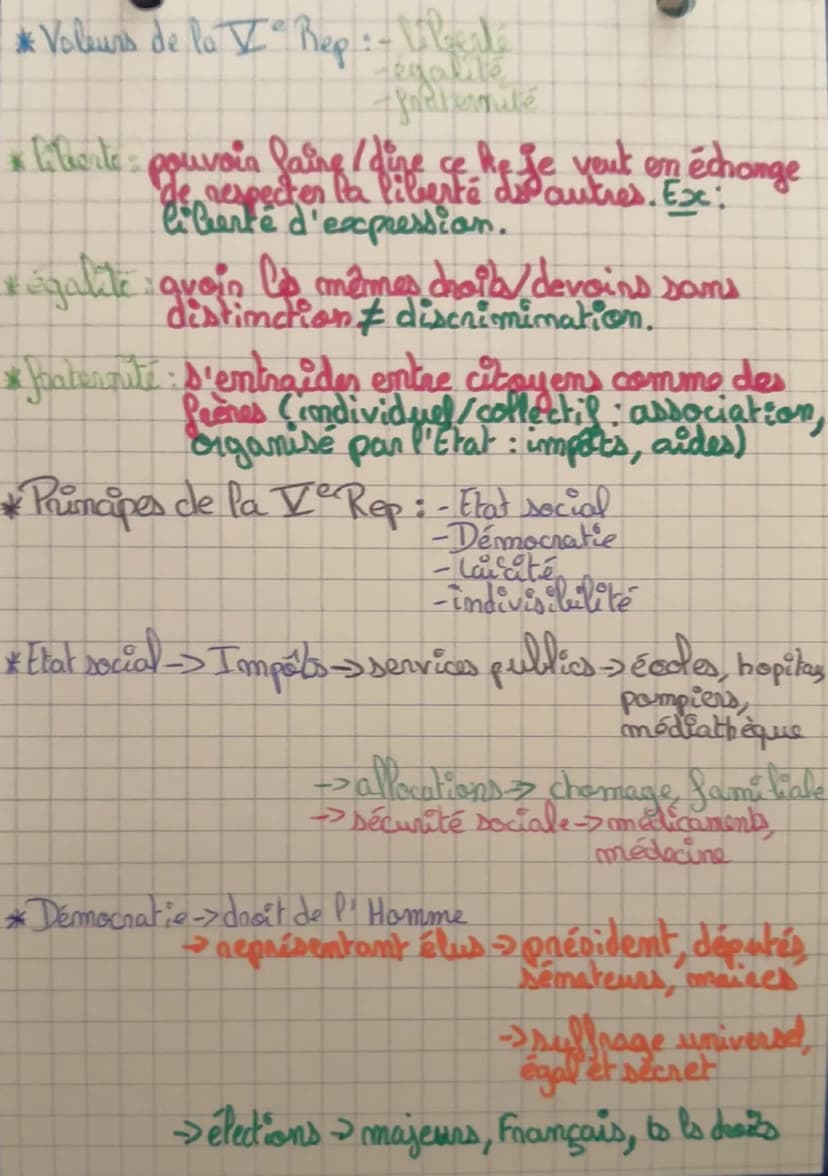 * Valeurs de la Ve Rep : - liberté
- égalité
- fraternité
* liberté : pouvoir faire/dire ce que je veut en échange
de respecter la liberté des autres. Ex :
liberté d'expression.
* égalité : avoir les mêmes droits/devoirs sans
distinction ≠ discrimination.
* fraternité : s'entraider entre citoyens comme des
frères (individuel/collectif : association,
organisé par l'Etat : impôts, aides)
* Principes de la Ve Rep : - Etat social
- Démocratie
- Laïcité
- indivisibilité
* Etat social -> Impôts -> services publics -> écoles, hopitaux
pompiers,
médiathèque
-> allocations -> chomage, familiale
-> sécurité sociale -> médicaments,
médecine
* Démocratie -> droit de l'Homme
-> représentant élus -> président, députés,
sénateurs, maires
-> suffrage universel,
égal et secret
-> élections -> majeurs, Français, ts ls droits